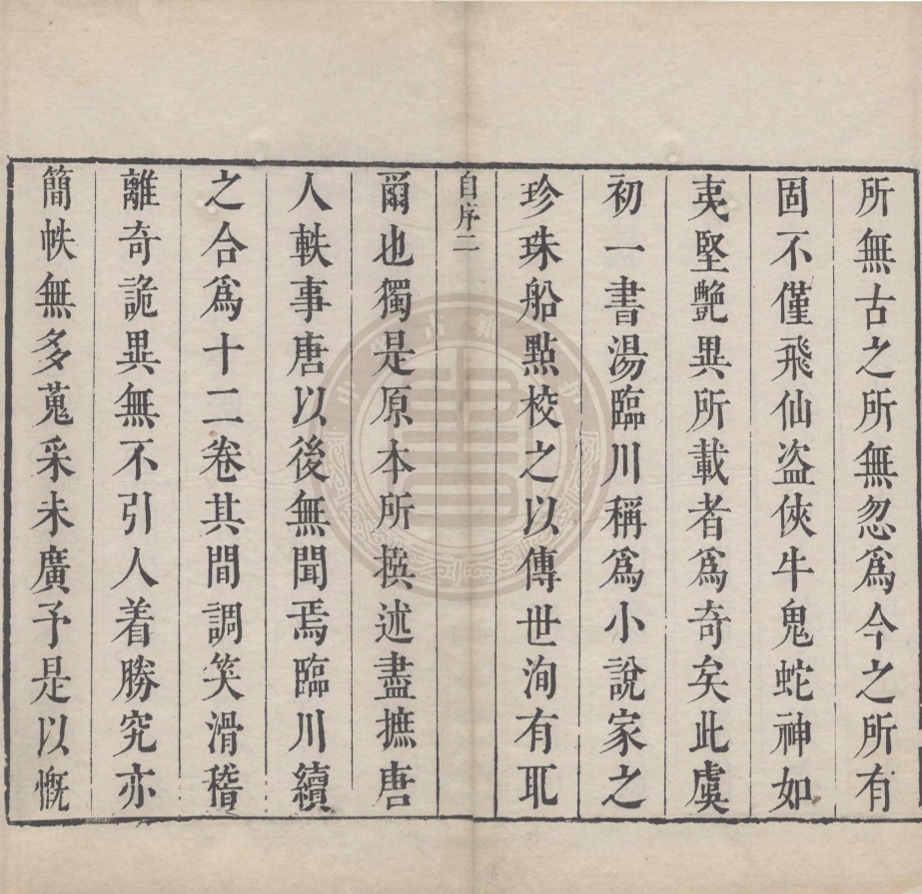 所無古之所無忽爲今之所有
固不僅飛仙盗俠牛鬼蛇神如
夷堅艶異所載者爲奇矣此虞
初一書湯臨川稱爲小說家之
珍珠船點校之以傳世洵有取
自序二
爾也獨是原本所撰述盡摭唐
人軼事唐以後無聞焉臨川續
之合爲十二卷其間調笑滑稽
離奇詭異無不引人着勝究亦
簡帙無多蒐采未廣予是以慨